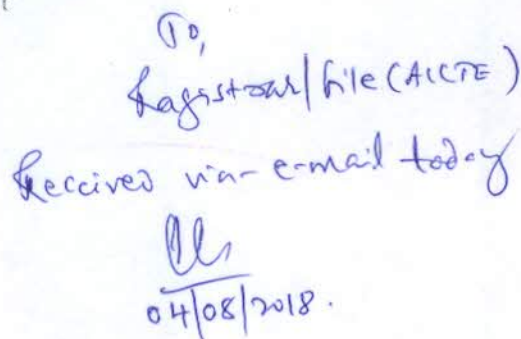 To,
Registrar/file (AICTE)
Received via-e-mail today
04/08/2018.